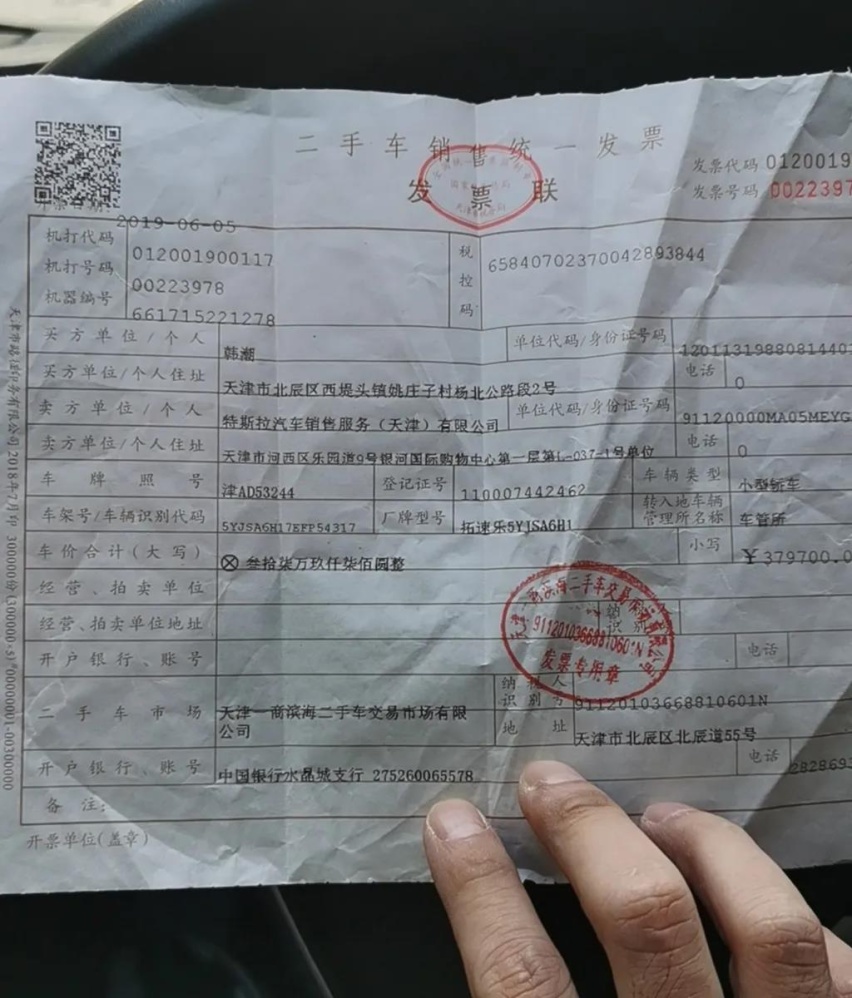 二手车销售统一发票
发票联
发票代码 0120019
发票号码 0022397
开票日期: 2019-06-05
机打代码 012001900117
机打号码 00223978
机器编号 661715221278
税控码 65840702370042893844
买方单位/个人 韩潮 单位代码/身份证号码 12011319880814403
买方单位/个人住址 天津市北辰区西堤头镇姚庄子村杨北公路段2号 电话 0
卖方单位/个人 特斯拉汽车销售服务（天津）有限公司 单位代码/身份证号码 91120000MA05MEYG
卖方单位/个人住址 天津市河西区乐园道9号银河国际购物中心第一层第L-037-1号单位 电话 0
车牌照号 津AD53244 登记证号 110007442462 车辆类型 小型轿车
车架号/车辆识别代码 5YJSA6H17EFP54317 厂牌型号 拓速乐5YJSA6H1 转入地车辆管理所名称 车管所
车价合计(大写) ⊗ 叁拾柒万玖仟柒佰圆整 小写 ￥379700.0
经营、拍卖单位
经营、拍卖单位地址 纳 识别
开户银行、账号 电话
91120103668810601N
发票专用章
二手车市场 天津一商滨海二手车交易市场有限公司 纳税人识别号 91120103668810601N
地址 天津市北辰区北辰道55号
开户银行、账号 中国银行水晶城支行 275260065578 电话 282869
备注:
开票单位(盖章)